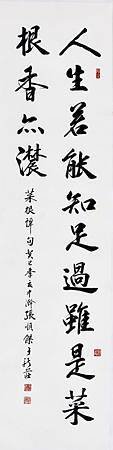 人生若能知足過雖是菜
根香亦濃
菜根譚句癸巳季張順傑于新莊